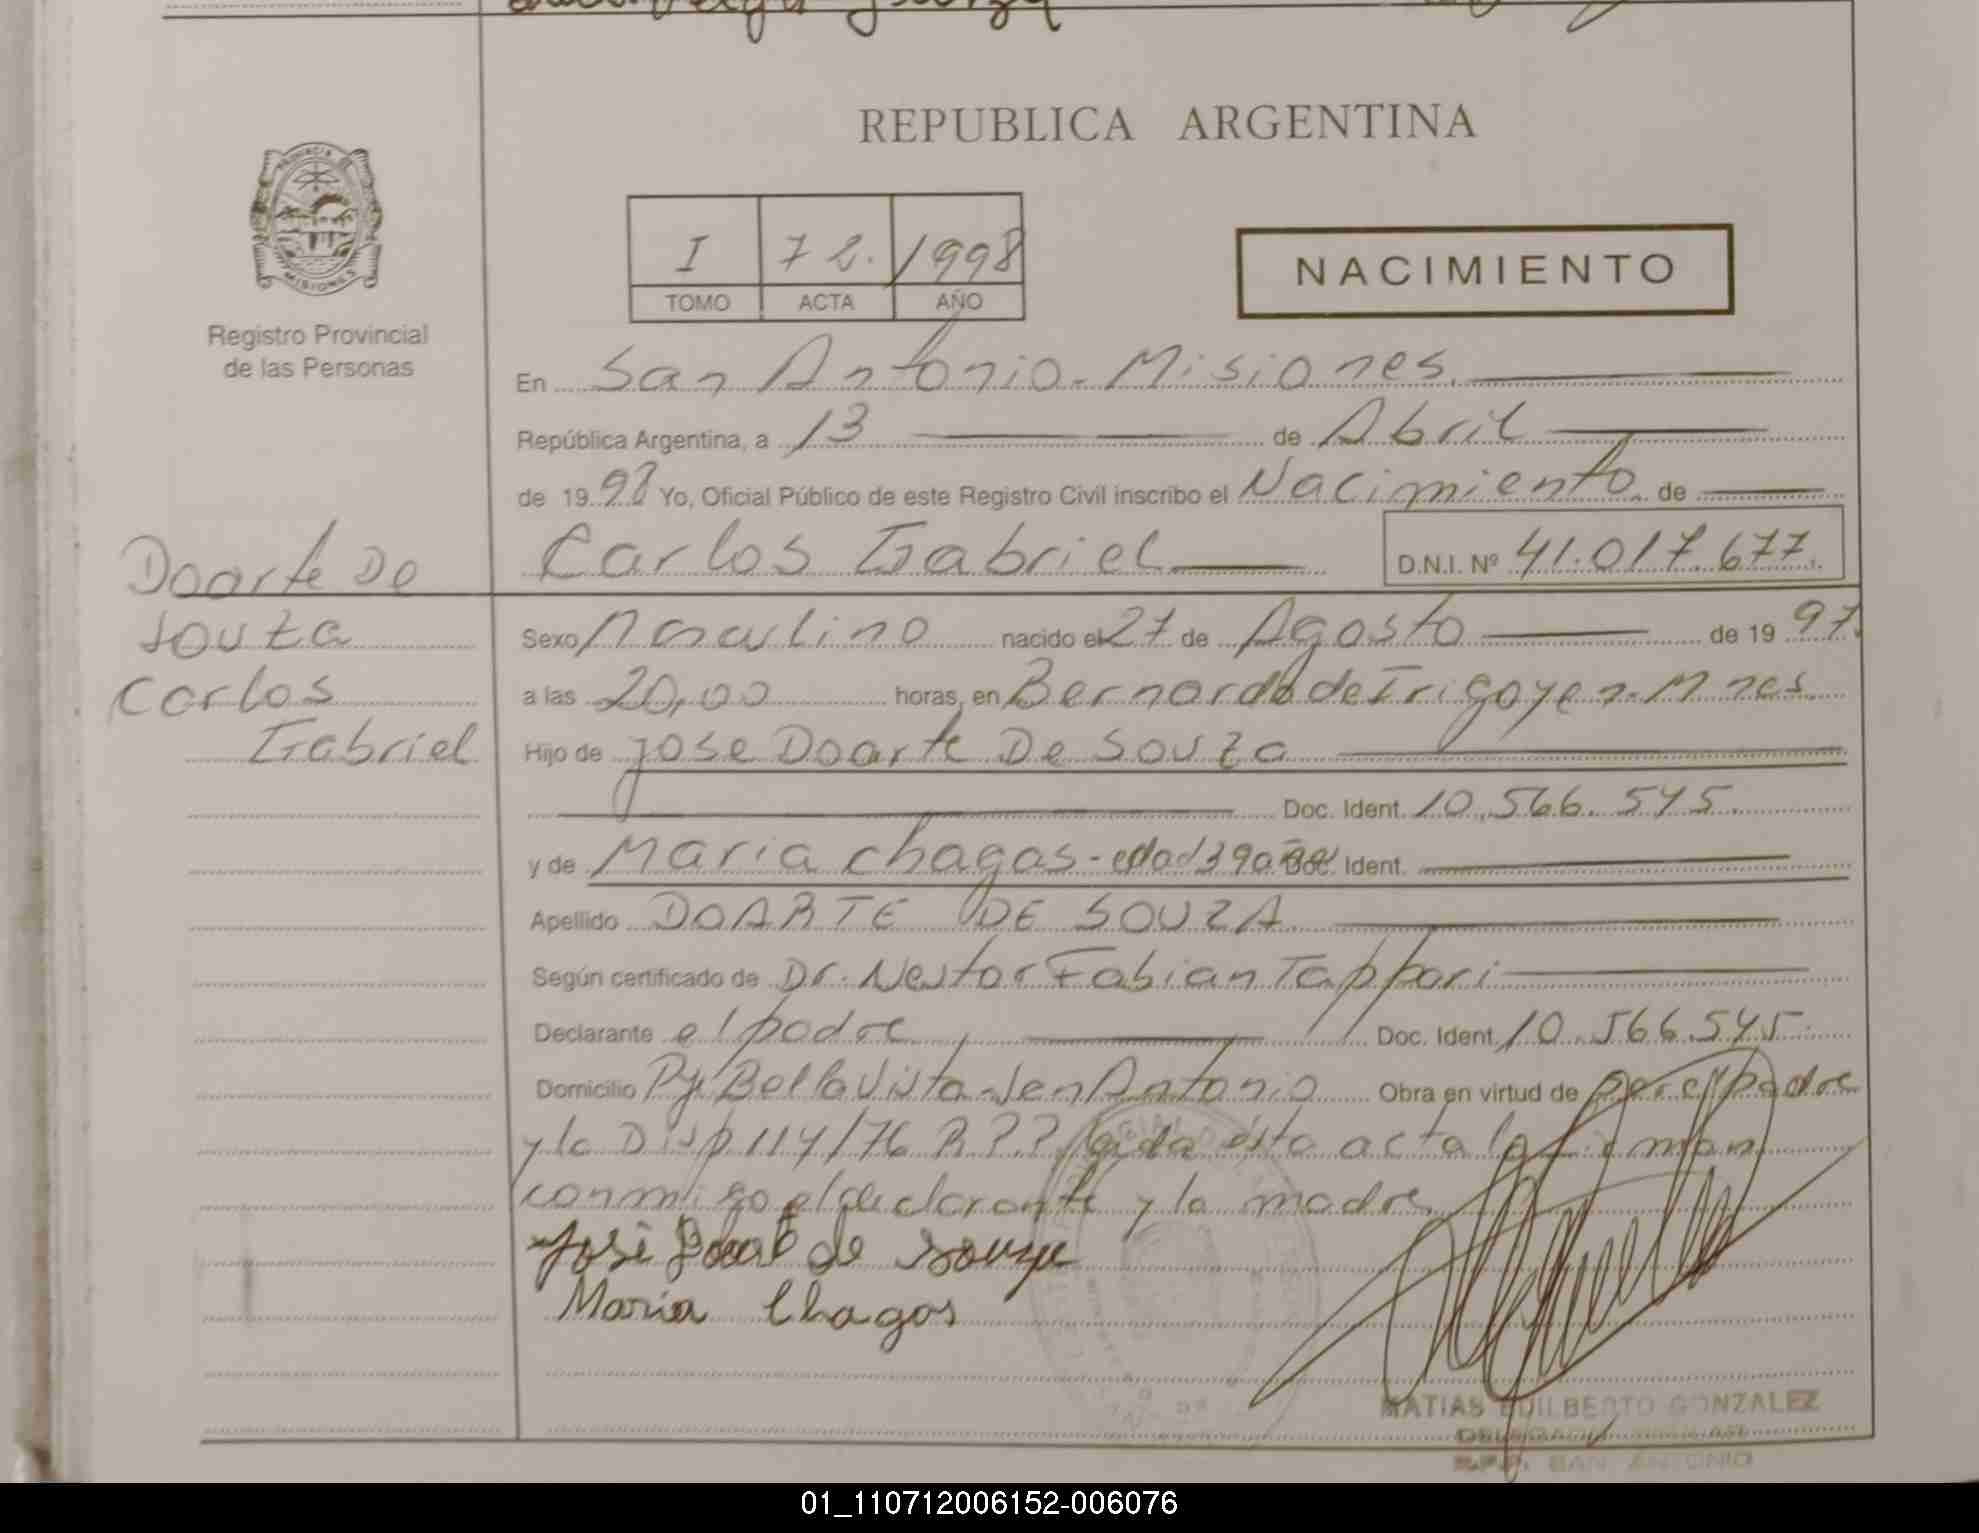 REPUBLICA ARGENTINA
PROVINCIA DE
MISIONES
Registro Provincial
de las Personas
I 72. 1998
TOMO ACTA AÑO
NACIMIENTO
En San Antonio - Misiones.
República Argentina, a 13 de Abril
de 19 98 Yo, Oficial Público de este Registro Civil inscribo el Nacimiento de
Carlos Gabriel D.N.I. Nº 41.017.677.
Doarte De
Souza
Carlos
Gabriel
Sexo Masculino nacido el 27 de Agosto de 19 97.
a las 20,00 horas, en Bernardo de Irigoyen - Mnes.
Hijo de Jose Doarte De Souza
Doc. Ident. 10.566.545.
y de Maria Chagas - edad 39 años Doc. Ident.
Apellido DOARTE DE SOUZA
Según certificado de Dr. Nestor Fabian Tappari
Declarante el padre Doc. Ident. 10.566.545.
Domicilio Pje Bella Vista - San Antonio Obra en virtud de ser el padre
y la Disp. 114/76 R.P.P. leida esta acta la firman
conmigo el declarante y la madre.
José de Souza
Maria Chagas
MATIAS EDILBERTO GONZALEZ
R.P.P. SAN ANTONIO
01_110712006152-006076